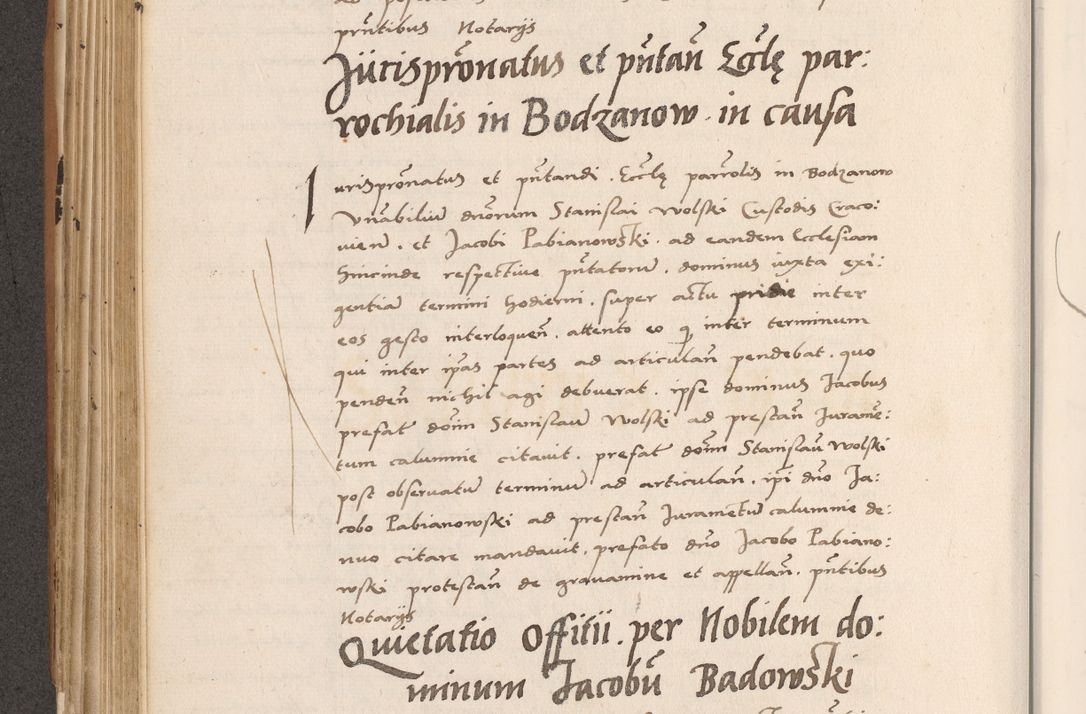 pñtibus Notarijs
Jurispr̃onatus et pñtañ Eccłę par:
rochialis in Bodzanow in causa
Iurispr̃onatus et pñtandi Eccłę parr̃olis in Bodzanow
Vñabiliũ dñorum Stanislai Wolski Custodis Craco:
vień. et Jacobi Pabianowski. ad eandem Ecclesiam
hincinde respective pñtatorũ. dominus iuxta exi:
gentiã termini hodierni. super actu pridie inter
eos gesto interloqueñ. attento eo q̃ inter terminum
qui inter ip̃as partes ad articulañ pendebat. quo
pendeñ nichil agi debuerat. ipse dominus Jacobus
prefat̃ dõim Stanislaũ Wolski ad prestañ Juramẽ:
tum calumnie citavit. prefat̃ dõim Stanislaũ Wolski
post observatũ terminũ ad articulañ. ip̃i dño Ja:
cobo Pabianowski ad prestañ Juramentũ calumnie de:
nuo citare mandavit. prefato dño Jacobo Pabiano:
wski protestañ de gravamine et appellañ. pñtibus
Notarijs
Quietatio Offitii. per Nobilem do:
minum Jacobũ Badowski